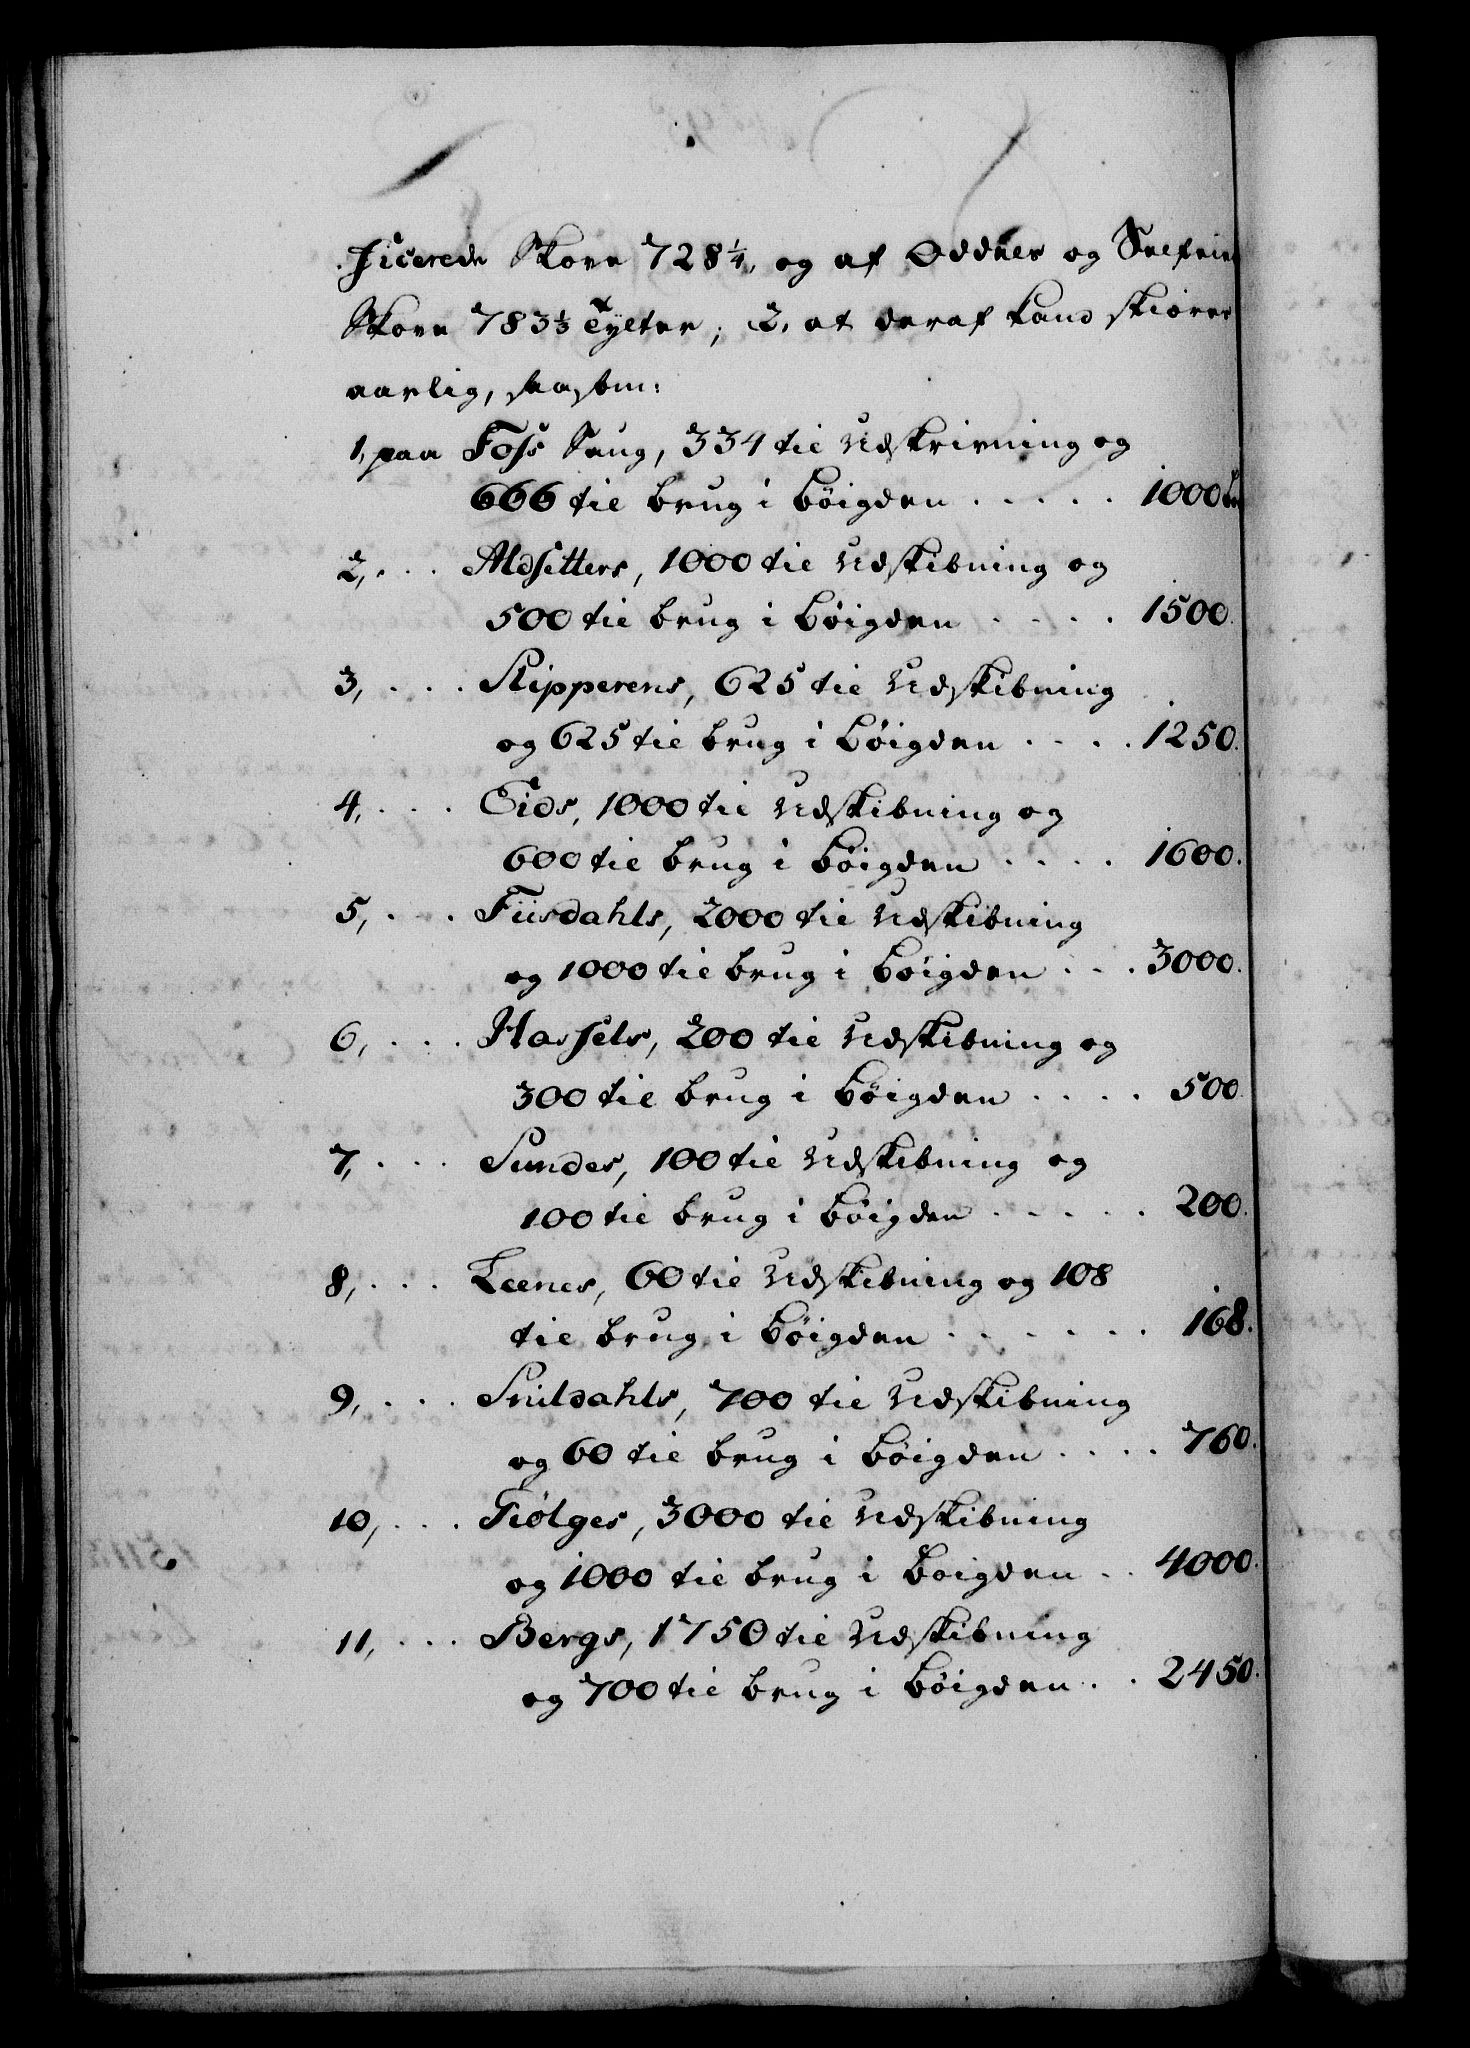 ficerede Skove 728 1/4, og af Oddnes og
Skove 783 1/3 Tylter; 2, at deraf kand skiæres
aarlig, saasom:
1, paa Foss Saug, 334 til Udskrivning og
666 til brug i bøigden . . . . . 1000
2, . . . Aldsitters, 1000 til Udskibning og
500 til brug i bøigden . . . . 1500.
3, . . . Skipperens, 625 til Udskibning
og 625 til brug i bøigden . . . . 1250.
4, . . . Eids, 1000 til Udskibning og
600 til brug i bøigden . . . . 1600.
5, . . . Fiisdahls, 2000 til Udskibning
og 1000 til brug i bøigden . . . 3000.
6, . . . Hassels, 200 til Udskibning og
300 til brug i bøigden . . . . 500.
7, . . . Sundes, 100 til Udskibning og
100 til brug i bøigden . . . . . 200.
8, . . . Leenes, 60 til Udskibning og 108
til brug i bøigden . . . . . . 168.
9, . . . Snildahls, 700 til Udskibning
og 60 til brug i bøigden . . . . 760.
10, . . . Fiølges, 3000 til Udskibning
og 1000 til brug i boigden . . 4000.
11, . . . Bergs, 1750 til Udskibning
og 700 til brug i bøigden . . 2450.